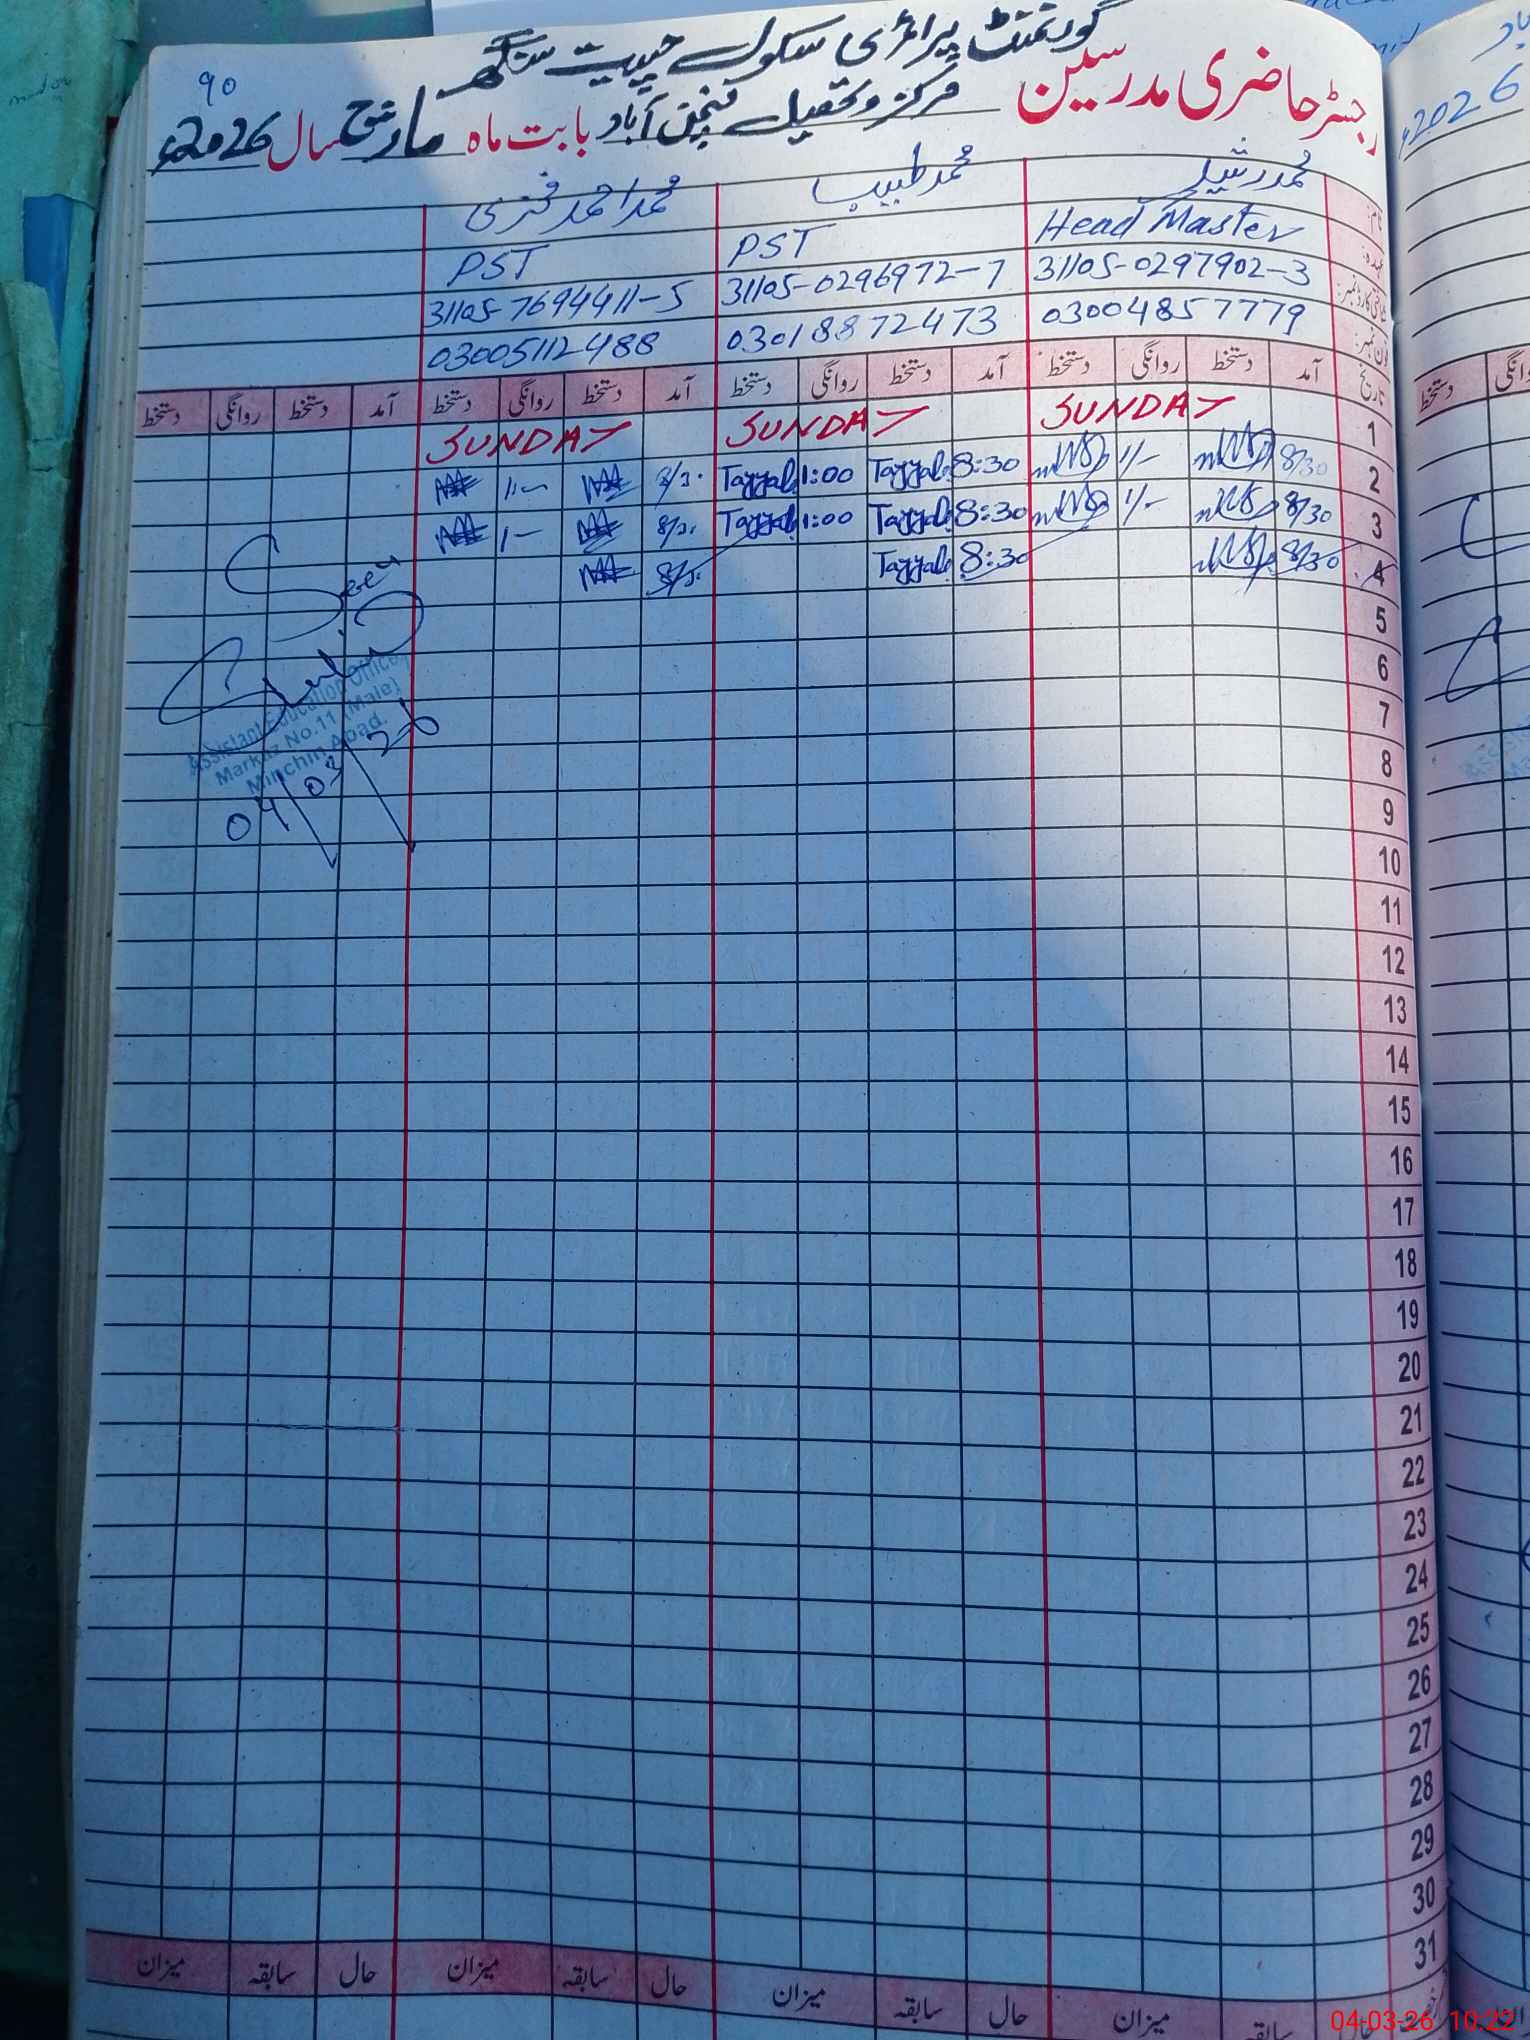 گورنمنٹ پرائمری سکول چپت سنگھ
90
رجسٹر حاضری مدرسین مرکز و تحصیل منچن آباد بابت ماہ مارچ سال 2026ء
نام: محمد رشید محمد طبیب محمد احمد
عہدہ: Head Master PST PST
شناختی کارڈ نمبر: 31105-0297902-3 31105-0296972-7 31105-7694411-5
فون نمبر: 03004857779 03018872473 03005112488
تاریخ آمد دستخط روانگی دستخط آمد دستخط روانگی دستخط آمد دستخط روانگی دستخط آمد دستخط روانگی دستخط
1 SUNDAY SUNDAY SUNDAY
2 8/30 1/- 8:30 Tayyab 1:00 Tayyab 8/30 1/-
3 8/30 1/- 8:30 Tayyab 1:00 Tayyab 8/30 1/-
4 8/30 8:30 Tayyab 8/30
5
6
7
8
9
10
11
12
13
14
15
16
17
18
19
20
21
22
23
24
25
26
27
28
29
30
31
Seen
Assistant Education Officer
Markaz No.11 (Male)
Minchin Abad.
04/03/26
حال سابقہ میزان حال سابقہ میزان حال سابقہ میزان
سابقہ میزان
2026ء
دستخط
04-03-26 10:22